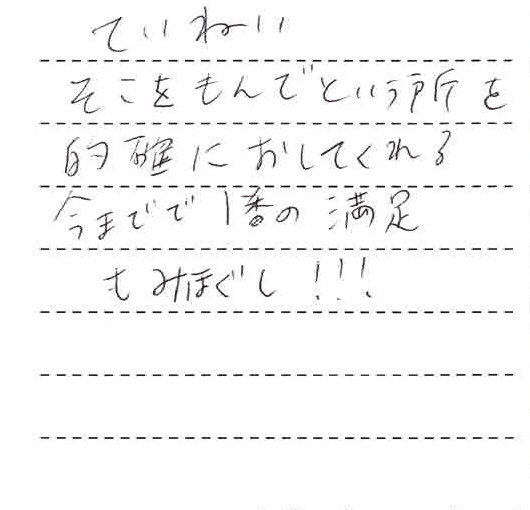 ていねい
そこをもんでという所を
的確におしてくれる
今までで1番の満足
もみほぐし!!!